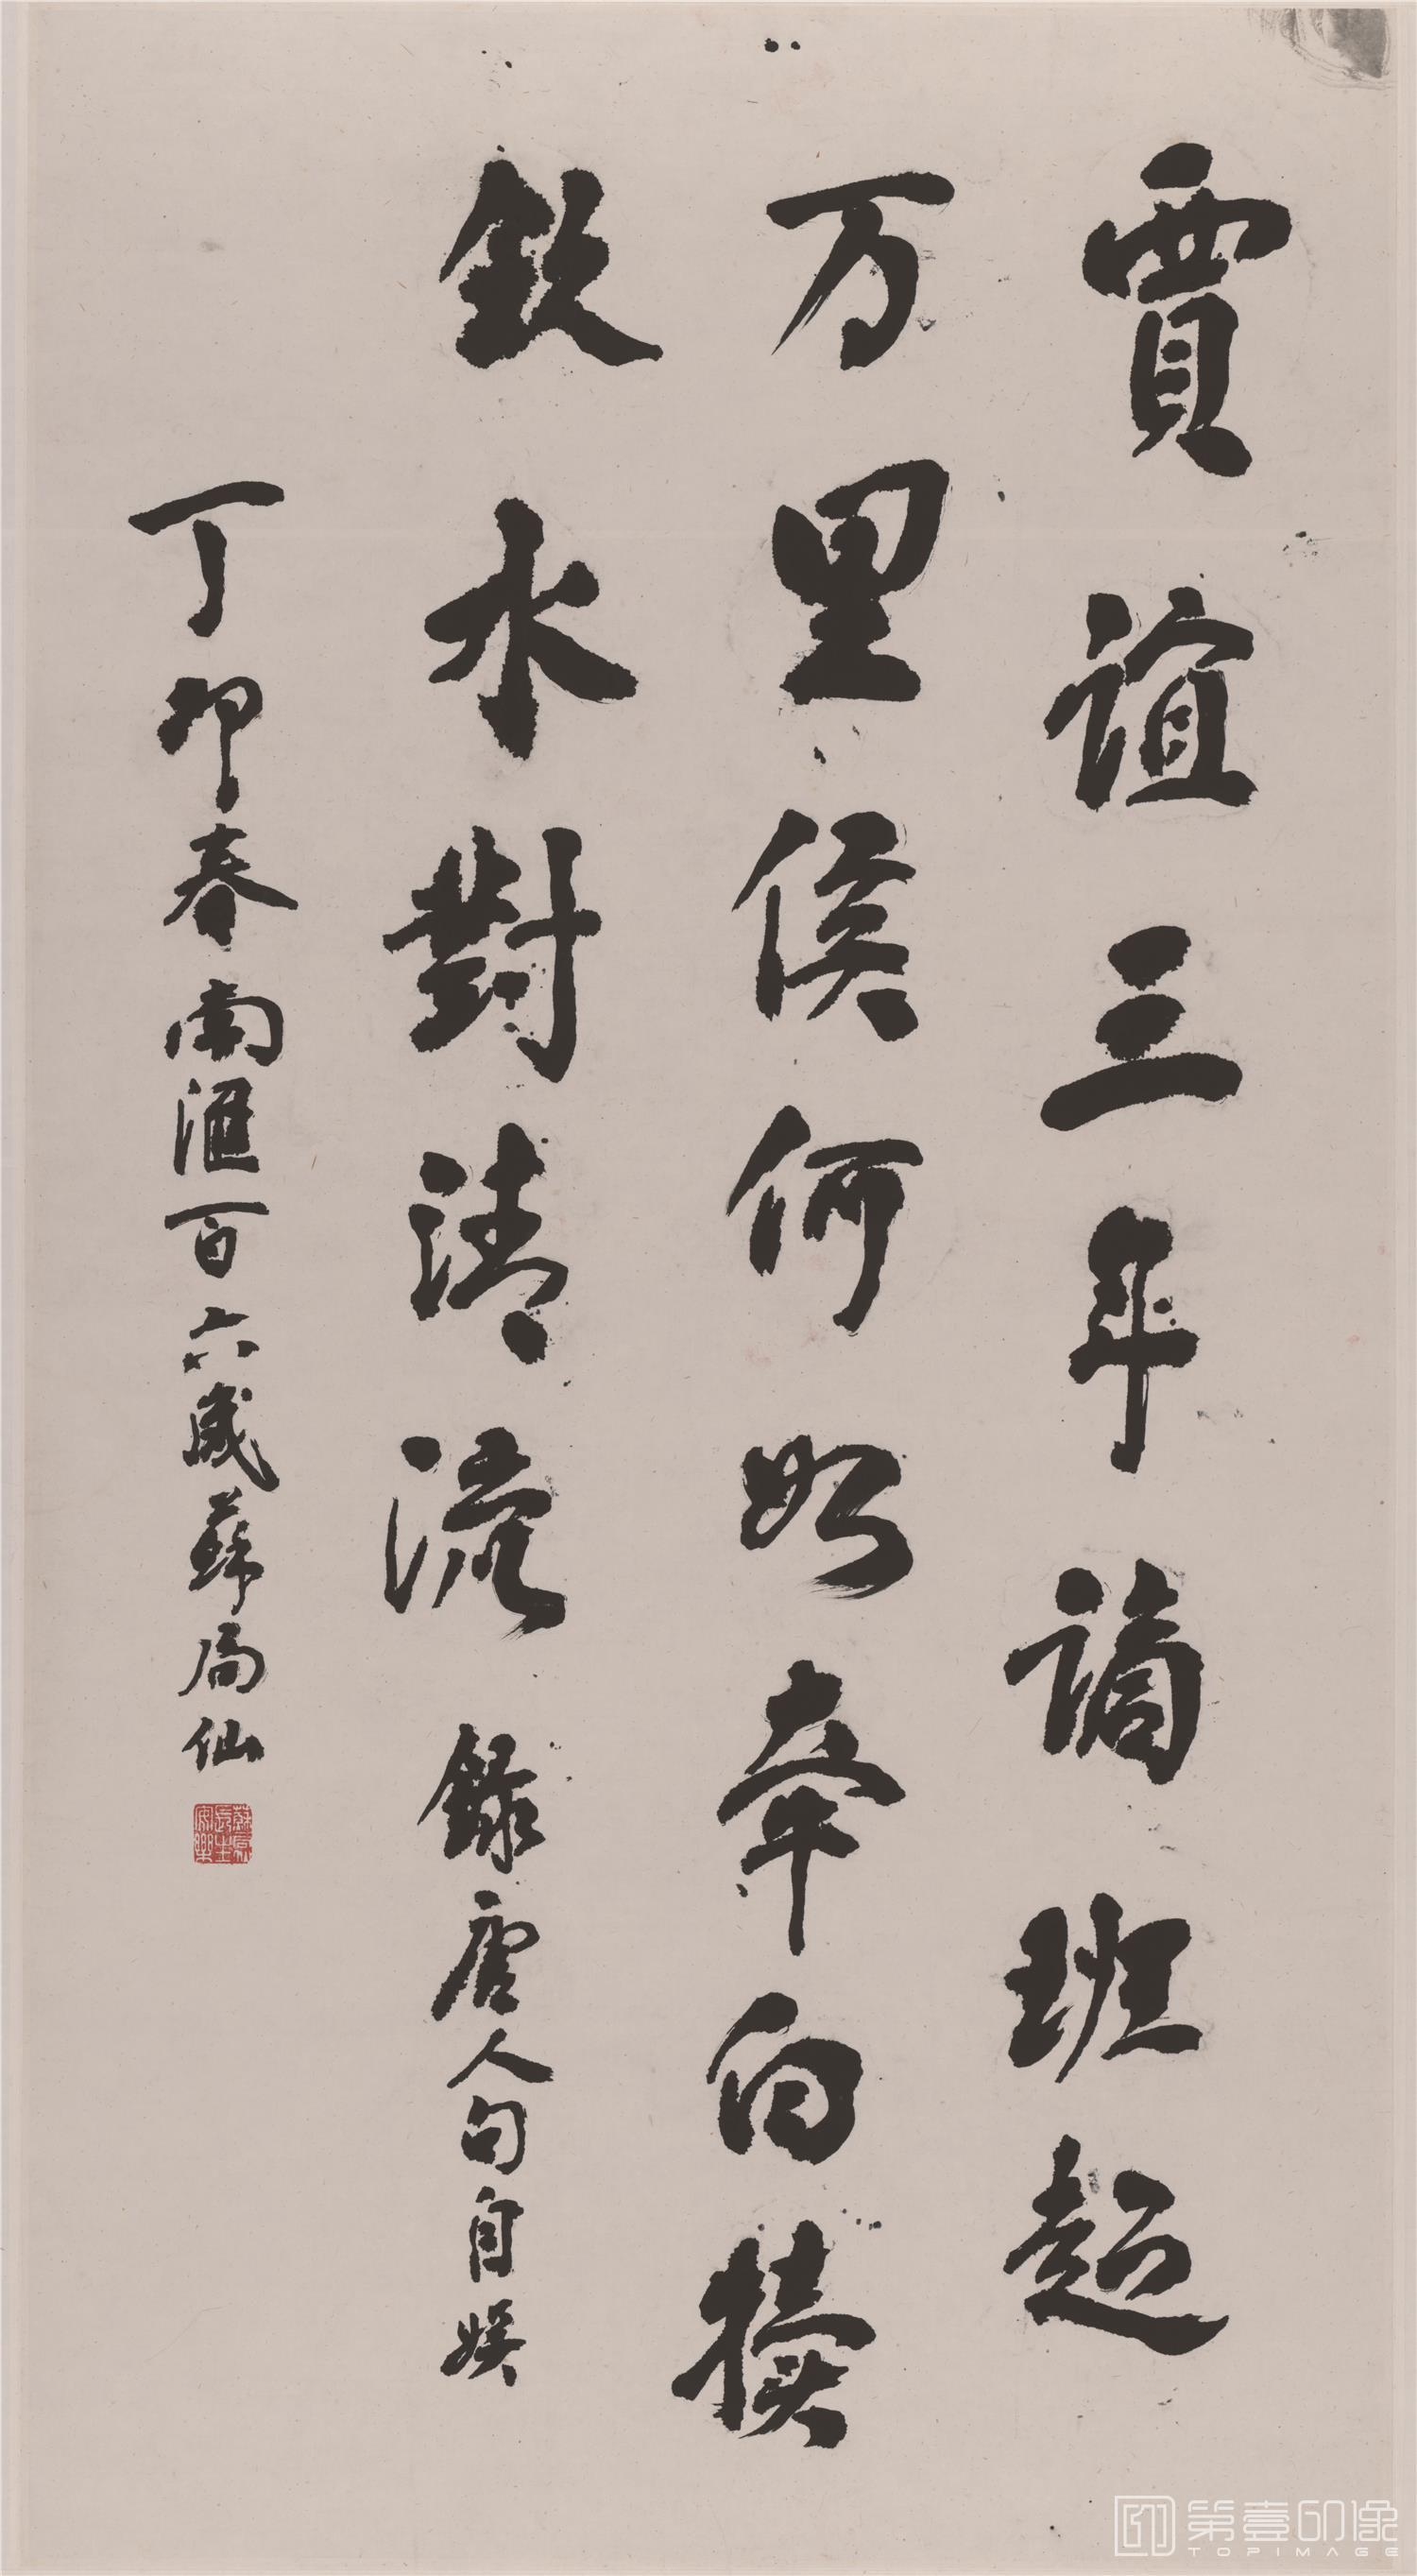 賈誼三年謫班超
万里侯何如牽白犢
飲水對清流 錄唐人句自娛
丁卯春南滙百六歲蘇局仙
第壹印像
TOPIMAGE